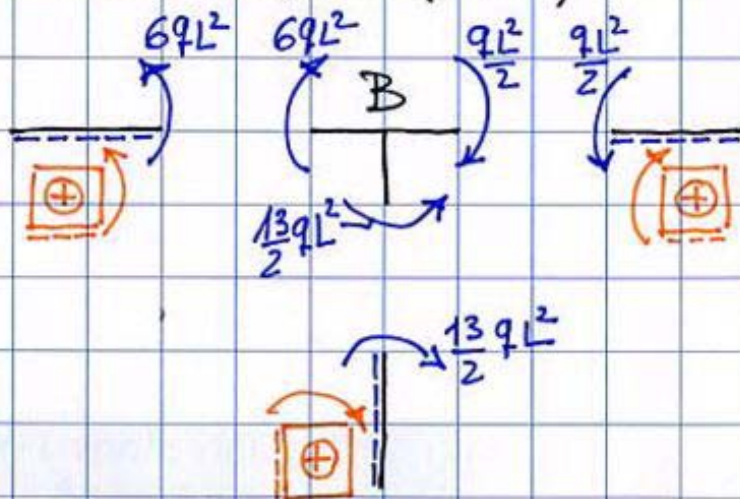 6qL² 6qL² qL²/2 qL²/2
B
+ 13/2 qL² +
13/2 qL²
+